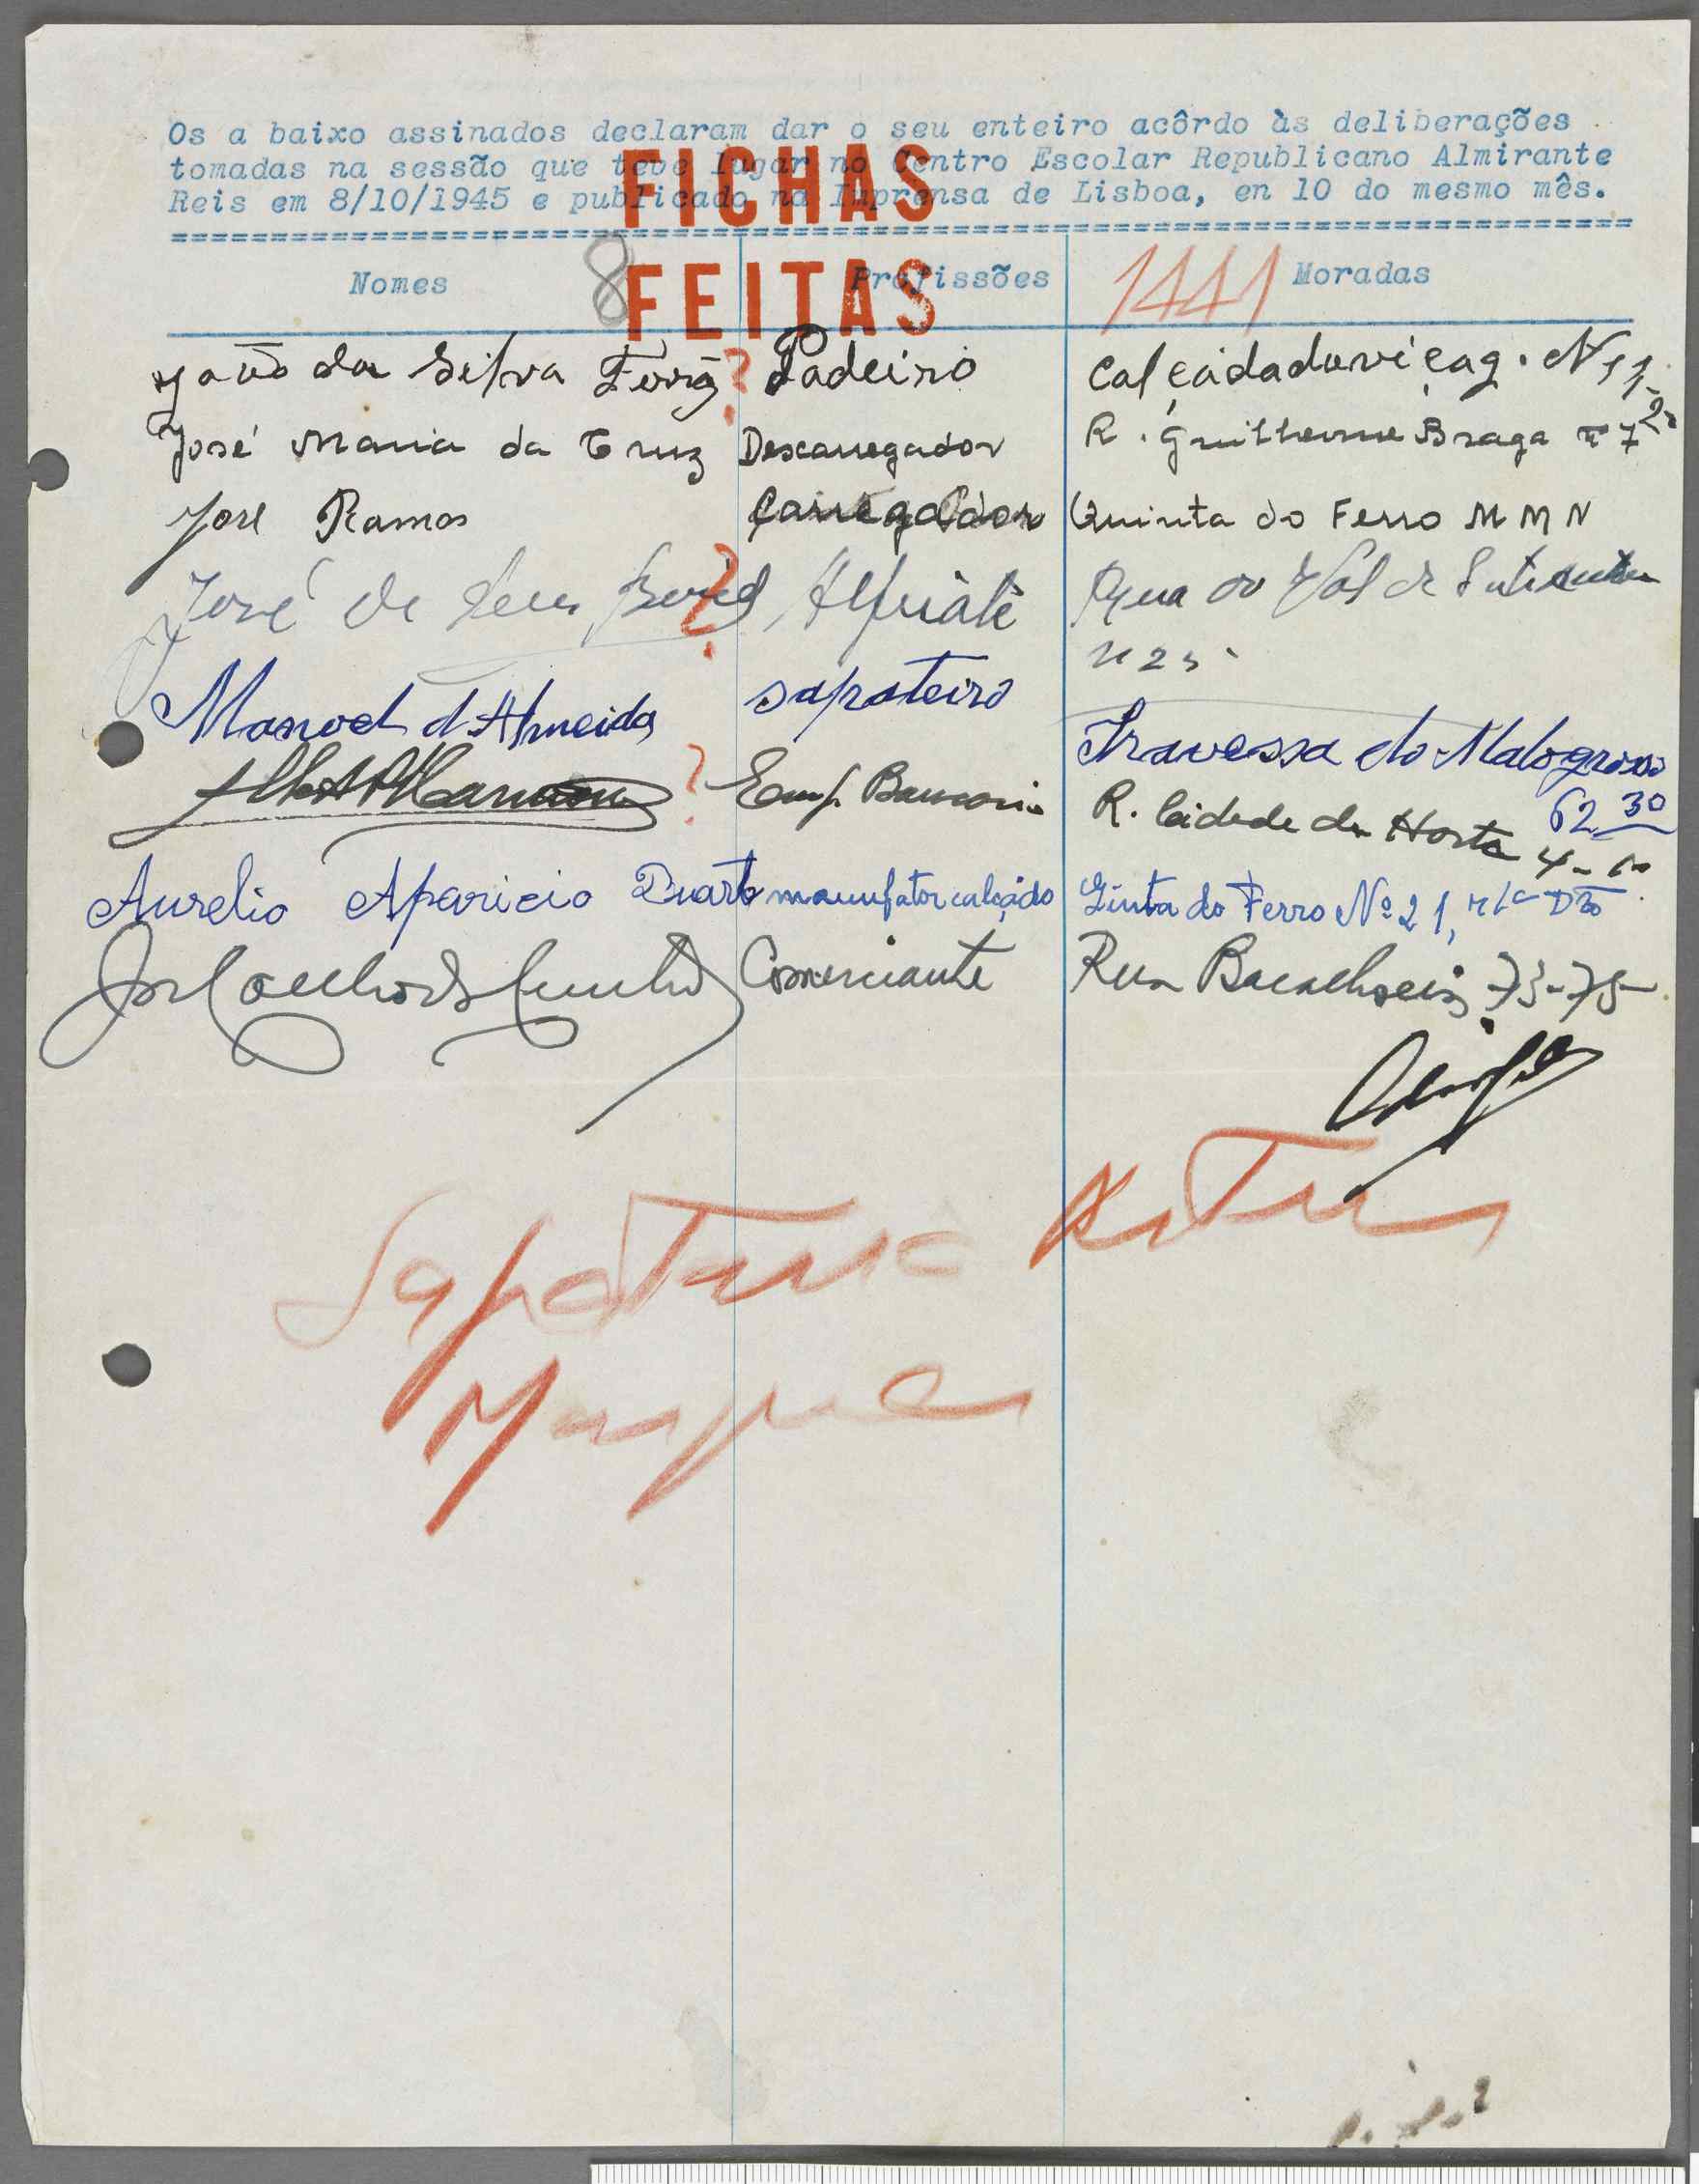 Os a baixo assinados declaram dar o seu enteiro acôrdo às deliberações
tomadas na sessão que teve lugar no Centro Escolar Republicano Almirante
Reis em 8/10/1945 e publicado na Inprensa de Lisboa, en 10 do mesmo mês.
FICHAS
FEITAS
8
1441
Nomes Profissões Moradas
João da Silva ? Padeiro
José Maria da Cruz Descarregador R. Guilherme Braga nº 7
José Ramos Carregador Quinta do Ferro M M N
José de ? Alfaiate Rua do Val de
N 25
Manoel d'Almeida sapateiro Travessa do Malogrosso
62 30
? Emp. Bancario R. Cidade da Horta 4-
Aurelio Aparicio Duarte manufator calçado Qinta do Ferro Nº 21, r/c Dto
Comerciante Rua Bacalhoeiros 73-75
Sapataria